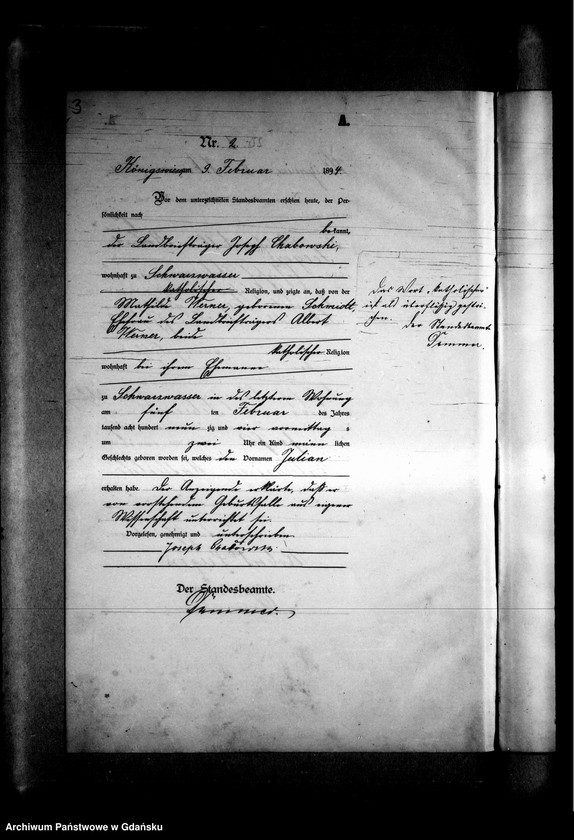 3
A.
Nr. 2
Königswiese am 9. Februar 1894.
Vor dem unterzeichneten Standesbeamten erschien heute, der Per-
sönlichkeit nach
bekannt,
der Landbriefträger Joseph Chabowski,
wohnhaft zu Schwarzwasser
katholischer Religion, und zeigte an, daß von der
Mathilde Werner, geborenen Schmidt,
Ehefrau des Landbriefträgers Albert
Werner, beide
katholischer Religion
wohnhaft bei ihrem Ehemanne
zu Schwarzwasser in des letzteren Wohnung
am fünf ten Februar des Jahres
tausend acht hundert neun zig und vier vormittag s
um zwei Uhr ein Kind männ lichen
Geschlechts geboren worden sei, welches den Vornamen Julian
erhalten habe. Der Anzeigende erklärte, daß er
von vorstehendem Geburtsfalle aus eigener
Wissenschaft unterrichtet sei.
Vorgelesen, genehmigt und unterschrieben
Joseph
Der Standesbeamte.
Das Wort „katholischer"
ist als überflüssig gestri-
chen. Der Standesbeamte
Archiwum Państwowe w Gdańsku